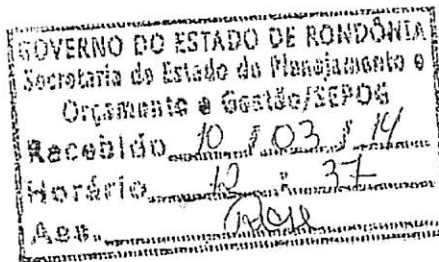 GOVERNO DO ESTADO DE RONDÔNIA
Secretaria de Estado do Planejamento e
Orçamento e Gestão/SEPOG
Recebido 10 / 03 / 14
Horário 12 : 37
Ass.